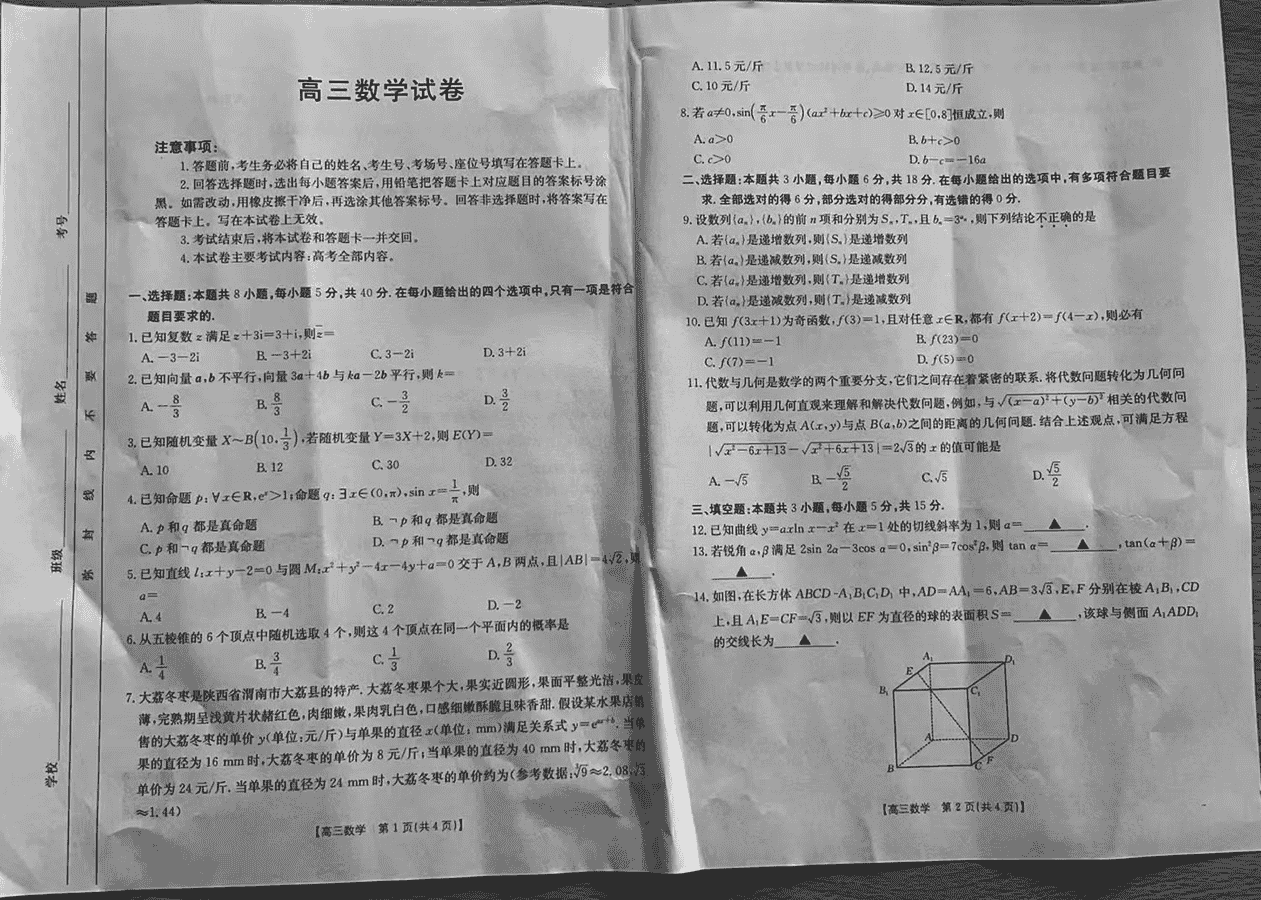 学校
班级
姓名
考号
弥 封 线 内 不 要 答 题
高三数学试卷
注意事项:
1.答题前,考生务必将自己的姓名、考生号、考场号、座位号填写在答题卡上。
2.回答选择题时,选出每小题答案后,用铅笔把答题卡上对应题目的答案标号涂
黑。如需改动,用橡皮擦干净后,再选涂其他答案标号。回答非选择题时,将答案写在
答题卡上。写在本试卷上无效。
3.考试结束后,将本试卷和答题卡一并交回。
4.本试卷主要考试内容:高考全部内容。
一、选择题:本题共8小题,每小题5分,共40分.在每小题给出的四个选项中,只有一项是符合
题目要求的.
1.已知复数z满足z+3i=3+i,则z̄=
A.-3-2i B.-3+2i C.3-2i D.3+2i
2.已知向量a,b不平行,向量3a+4b与ka-2b平行,则k=
A.-8/3 B.8/3 C.-3/2 D.3/2
3.已知随机变量X~B(10,1/3),若随机变量Y=3X+2,则E(Y)=
A.10 B.12 C.30 D.32
4.已知命题p:∀x∈R,eˣ>1;命题q:∃x∈(0,π),sin x=1/π,则
A.p和q都是真命题 B.¬p和q都是真命题
C.p和¬q都是真命题 D.¬p和¬q都是真命题
5.已知直线l:x+y-2=0与圆M:x²+y²-4x-4y+a=0交于A,B两点,且|AB|=4√2,则
a=
A.4 B.-4 C.2 D.-2
6.从五棱锥的6个顶点中随机选取4个,则这4个顶点在同一个平面内的概率是
A.1/4 B.3/4 C.1/3 D.2/3
7.大荔冬枣是陕西省渭南市大荔县的特产.大荔冬枣果个大,果实近圆形,果面平整光洁,果皮
薄,完熟期呈浅黄片状赭红色,肉细嫩,果肉乳白色,口感细嫩酥脆且味香甜.假设某水果店销
售的大荔冬枣的单价y(单位:元/斤)与单果的直径x(单位:mm)满足关系式y=e^(ax+b).当单
果的直径为16 mm时,大荔冬枣的单价为8元/斤;当单果的直径为40 mm时,大荔冬枣的
单价为24元/斤.当单果的直径为24 mm时,大荔冬枣的单价约为(参考数据:∛9≈2.08,∛3
≈1.44)
【高三数学 第1页(共4页)】
A.11.5元/斤 B.12.5元/斤
C.10元/斤 D.14元/斤
8.若a≠0,sin(π/6x-π/6)(ax²+bx+c)≥0对x∈[0,8]恒成立,则
A.a>0 B.b+c>0
C.c>0 D.b-c=-16a
二、选择题:本题共3小题,每小题6分,共18分.在每小题给出的选项中,有多项符合题目要
求.全部选对的得6分,部分选对的得部分分,有选错的得0分.
9.设数列{aₙ},{bₙ}的前n项和分别为Sₙ,Tₙ,且bₙ=3^(aₙ),则下列结论不正确的是
A.若{aₙ}是递增数列,则{Sₙ}是递增数列
B.若{aₙ}是递减数列,则{Sₙ}是递减数列
C.若{aₙ}是递增数列,则{Tₙ}是递增数列
D.若{aₙ}是递减数列,则{Tₙ}是递减数列
10.已知f(3x+1)为奇函数,f(3)=1,且对任意x∈R,都有f(x+2)=f(4-x),则必有
A.f(11)=-1 B.f(23)=0
C.f(7)=-1 D.f(5)=0
11.代数与几何是数学的两个重要分支,它们之间存在着紧密的联系.将代数问题转化为几何问
题,可以利用几何直观来理解和解决代数问题,例如,与√((x-a)²+(y-b)²)相关的代数问
题,可以转化为点A(x,y)与点B(a,b)之间的距离的几何问题.结合上述观点,可满足方程
|√(x²-6x+13)-√(x²+6x+13)|=2√3的x的值可能是
A.-√5 B.-√5/2 C.√5 D.√5/2
三、填空题:本题共3小题,每小题5分,共15分.
12.已知曲线y=axln x-x²在x=1处的切线斜率为1,则a=▲.
13.若锐角α,β满足2sin 2α-3cos α=0,sin²β=7cos²β,则tan α=▲,tan(α+β)=
▲.
14.如图,在长方体ABCD-A₁B₁C₁D₁中,AD=AA₁=6,AB=3√3,E,F分别在棱A₁B₁,CD
上,且A₁E=CF=√3,则以EF为直径的球的表面积S=▲,该球与侧面A₁ADD₁
的交线长为▲.
A₁ D₁
E
B₁ C₁
A D
F
B C
【高三数学 第2页(共4页)】